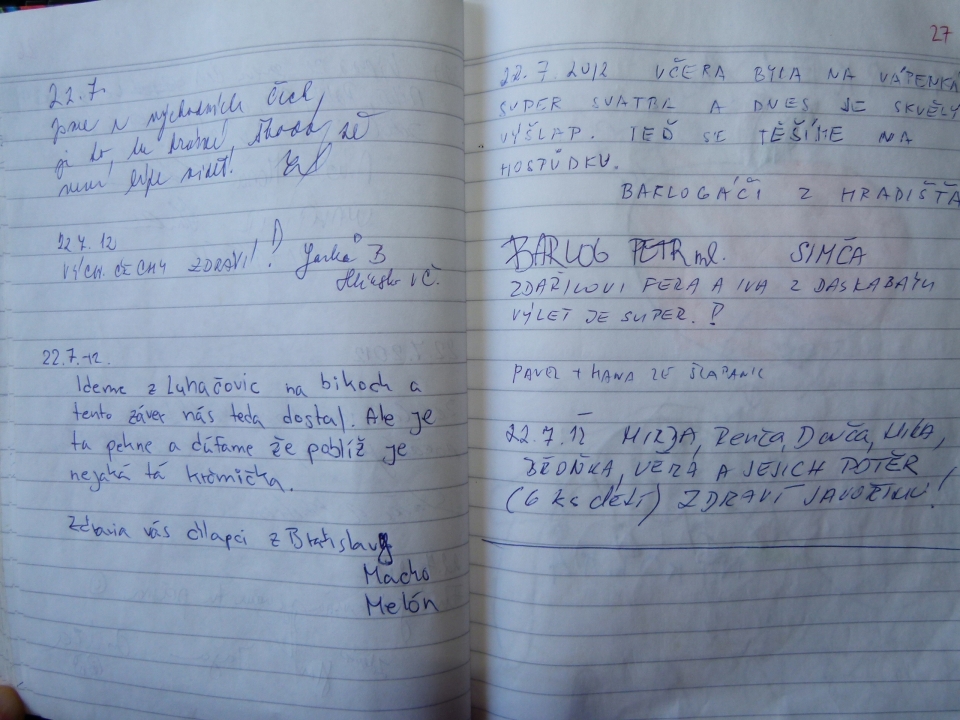 22.7.
Jsme z východních Čech,
je to tu krásné, škoda, že
není lépe vidět!
22.7.12
VÝCH. ČECHY ZDRAVÍ! Jarka B
Hlinsko v Č.
22.7.12.
Ideme z Luhačovic na bikoch a
tento záver nás teda dostal. Ale je
tu pekne a dúfame že poblíž je
nejaká tá krčmička.
Zdravia vás chlapci z Bratislavy
Macho
Melón
27
22.7.2012 VČERA BYLA NA VÁPENKÁ
SUPER SVATBA A DNES JE SKVĚLÝ
VÝŠLAP. TEĎ SE TĚŠÍME NA
HOSTÚDKU.
BARLOGÁČI Z HRADIŠŤA
BARLOG PETR ml. SIMČA
ZDAŘILOVI FERA A IVA Z DASKABÁTU
VÝLET JE SUPER.!
PAVEL + HANA ZE ŠLAPANIC
22.7.12 MIRJA, Renča, Danča, MIRA,
VĚRA A JEJICH POTĚR
(6 ks dětí) ZDRAVÍ JAVOŘINU!